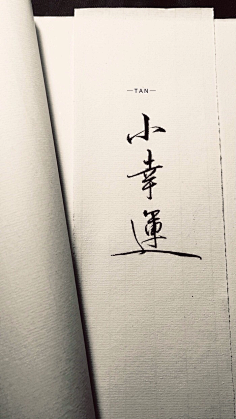 —TAN—
小
幸
運